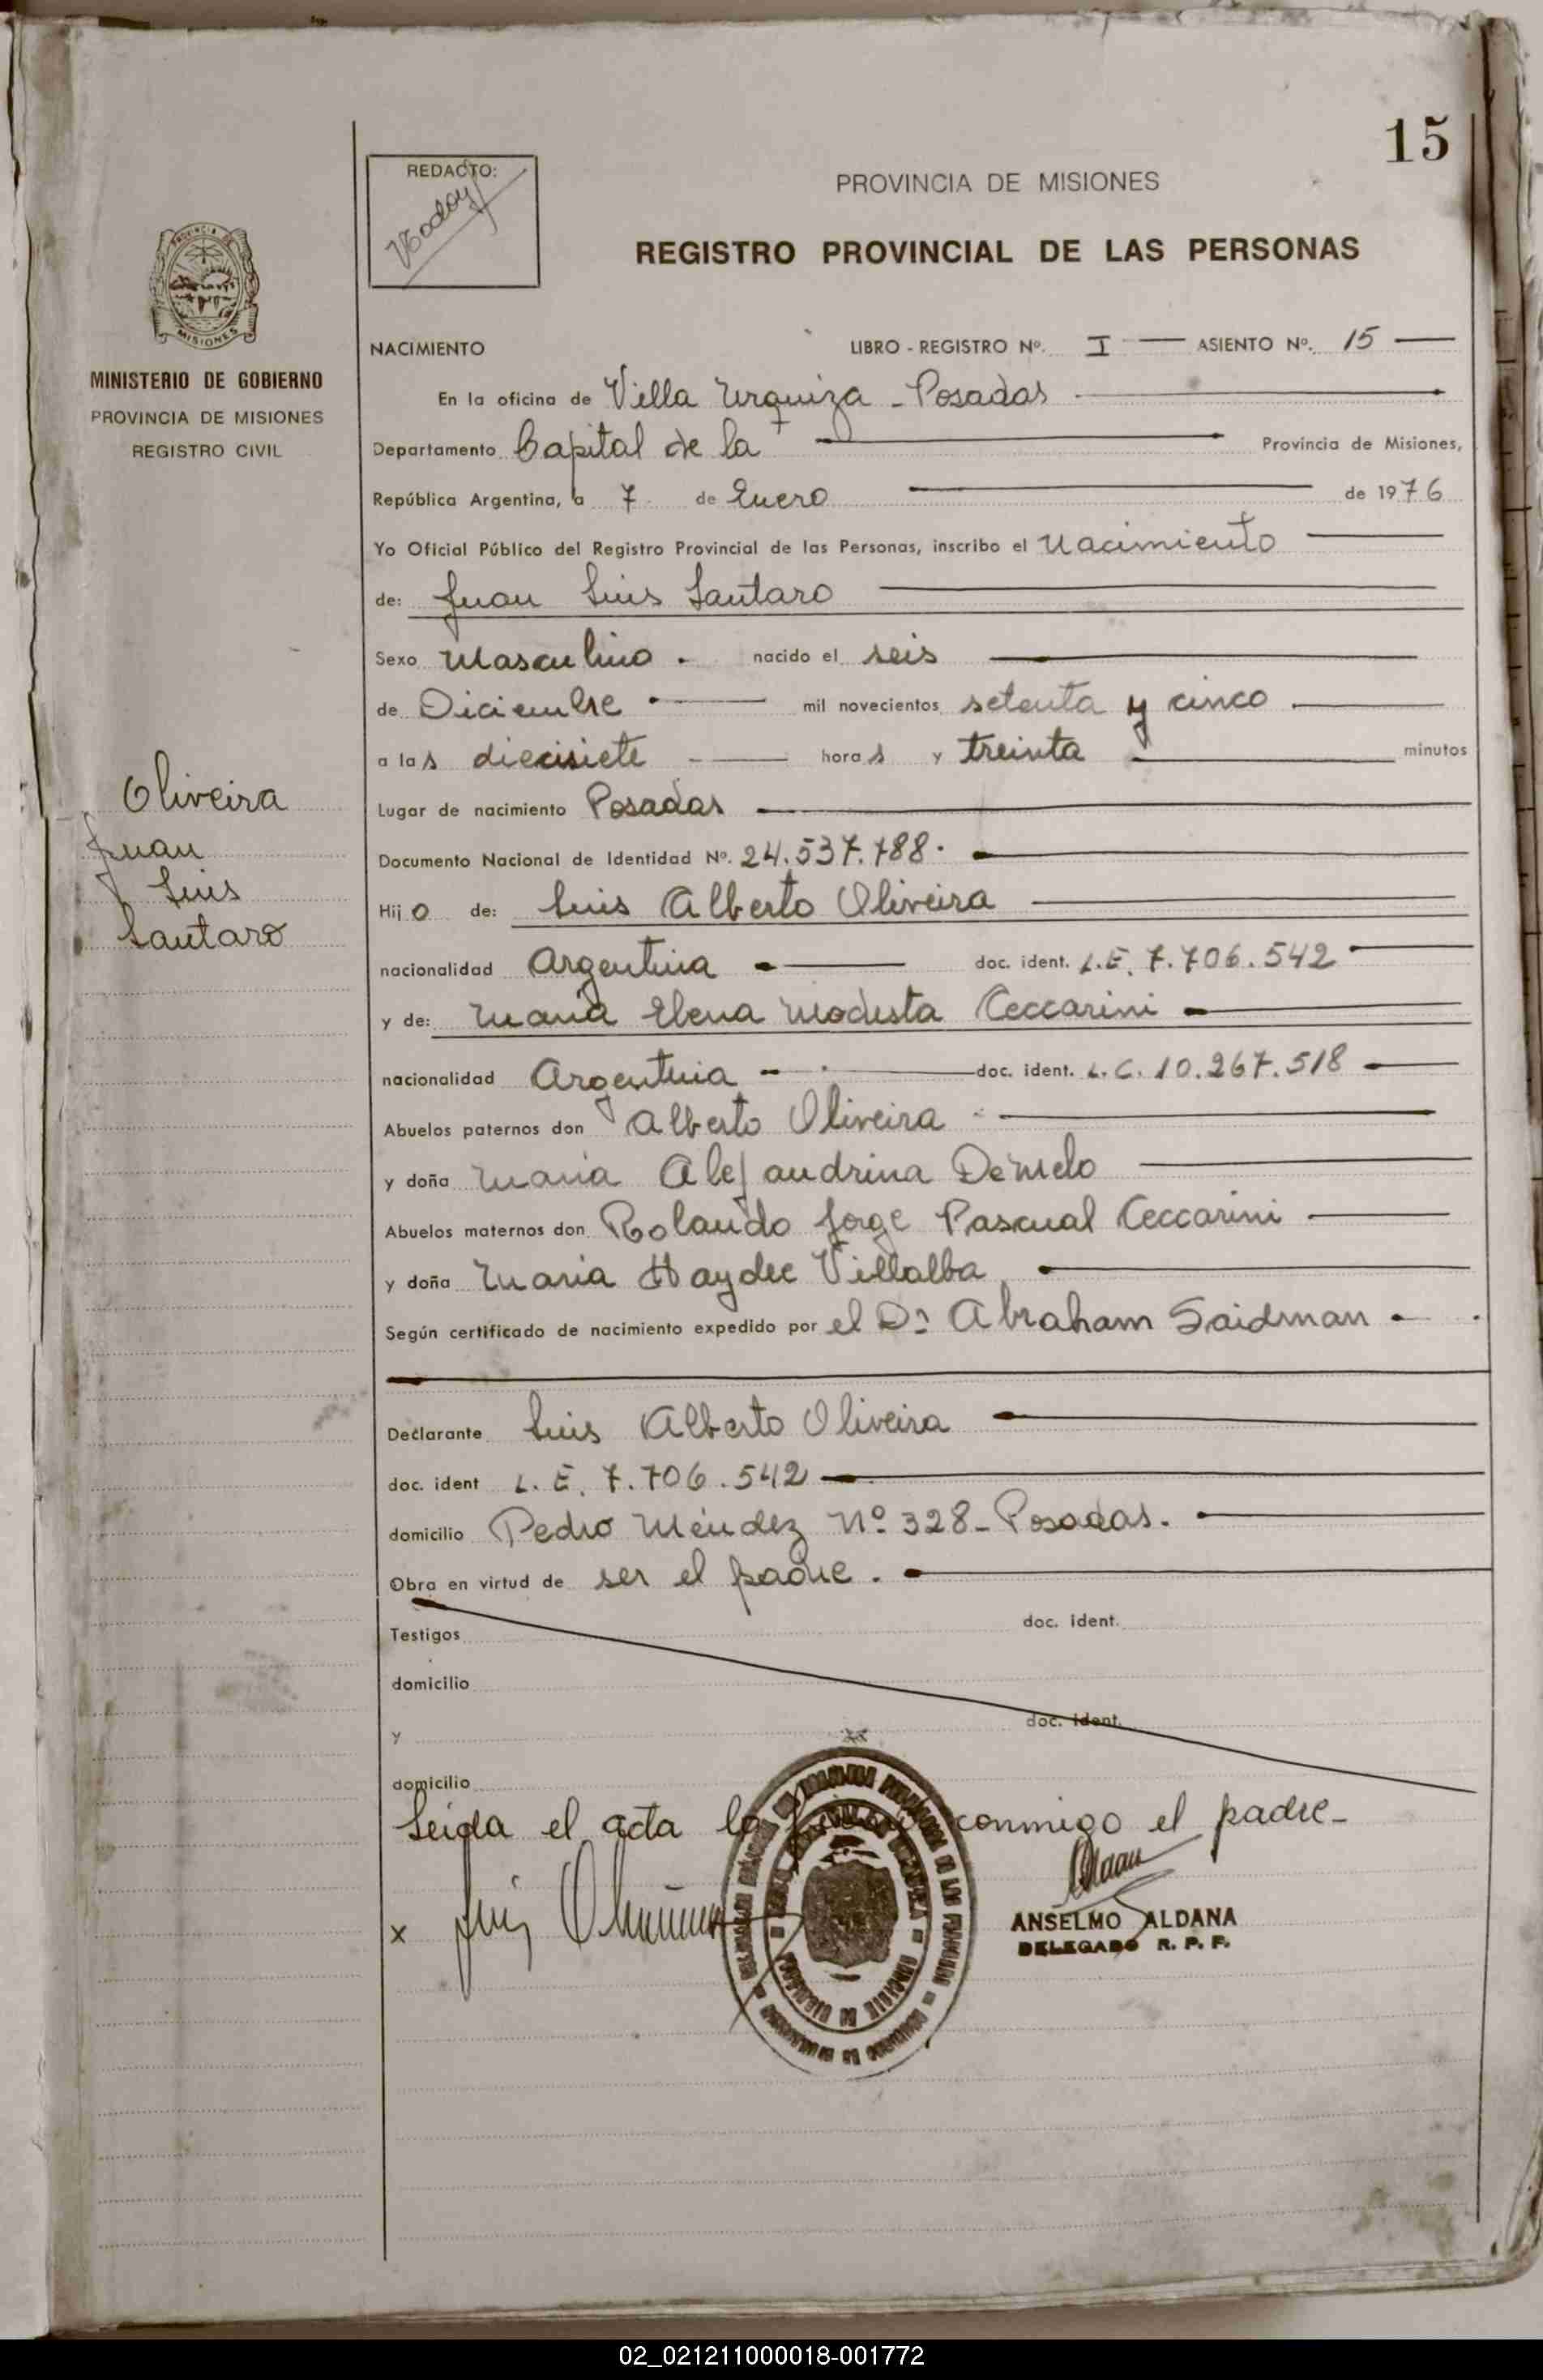 15
REDACTO:
PROVINCIA DE MISIONES
REGISTRO PROVINCIAL DE LAS PERSONAS
PROVINCIA DE
MISIONES
MINISTERIO DE GOBIERNO
PROVINCIA DE MISIONES
REGISTRO CIVIL
Oliveira
Juan
Luis
Lautaro
NACIMIENTO LIBRO - REGISTRO Nº. I ASIENTO Nº. 15
En la oficina de Villa Urquiza - Posadas
Departamento Capital de la Provincia de Misiones,
República Argentina, a 7 de Enero de 1976
Yo Oficial Público del Registro Provincial de las Personas, inscribo el Nacimiento
de: Juan Luis Lautaro
Sexo Masculino . nacido el seis
de Diciembre mil novecientos setenta y cinco
a las diecisiete horas y treinta minutos
Lugar de nacimiento Posadas
Documento Nacional de Identidad Nº. 24.537.788.
Hijo de: Luis Alberto Oliveira
nacionalidad Argentina doc. ident. L.E. 7.706.542
y de: María Elena Modesta Ceccarini
nacionalidad Argentina doc. ident. L.C. 10.267.518
Abuelos paternos don Alberto Oliveira
y doña María Alejandrina De Melo
Abuelos maternos don Rolando Jorge Pascual Ceccarini
y doña María Haydee Villalba
Según certificado de nacimiento expedido por el Dr Abraham Saidman
Declarante Luis Alberto Oliveira
doc. ident L. E. 7.706.542
domicilio Pedro Méndez Nº 328 - Posadas.
Obra en virtud de ser el padre.
Testigos doc. ident.
domicilio
y doc. ident.
domicilio
Leída el acta la conmigo el padre-
x Luis
ANSELMO ALDANA
DELEGADO R. P. P.
02_021211000018-001772